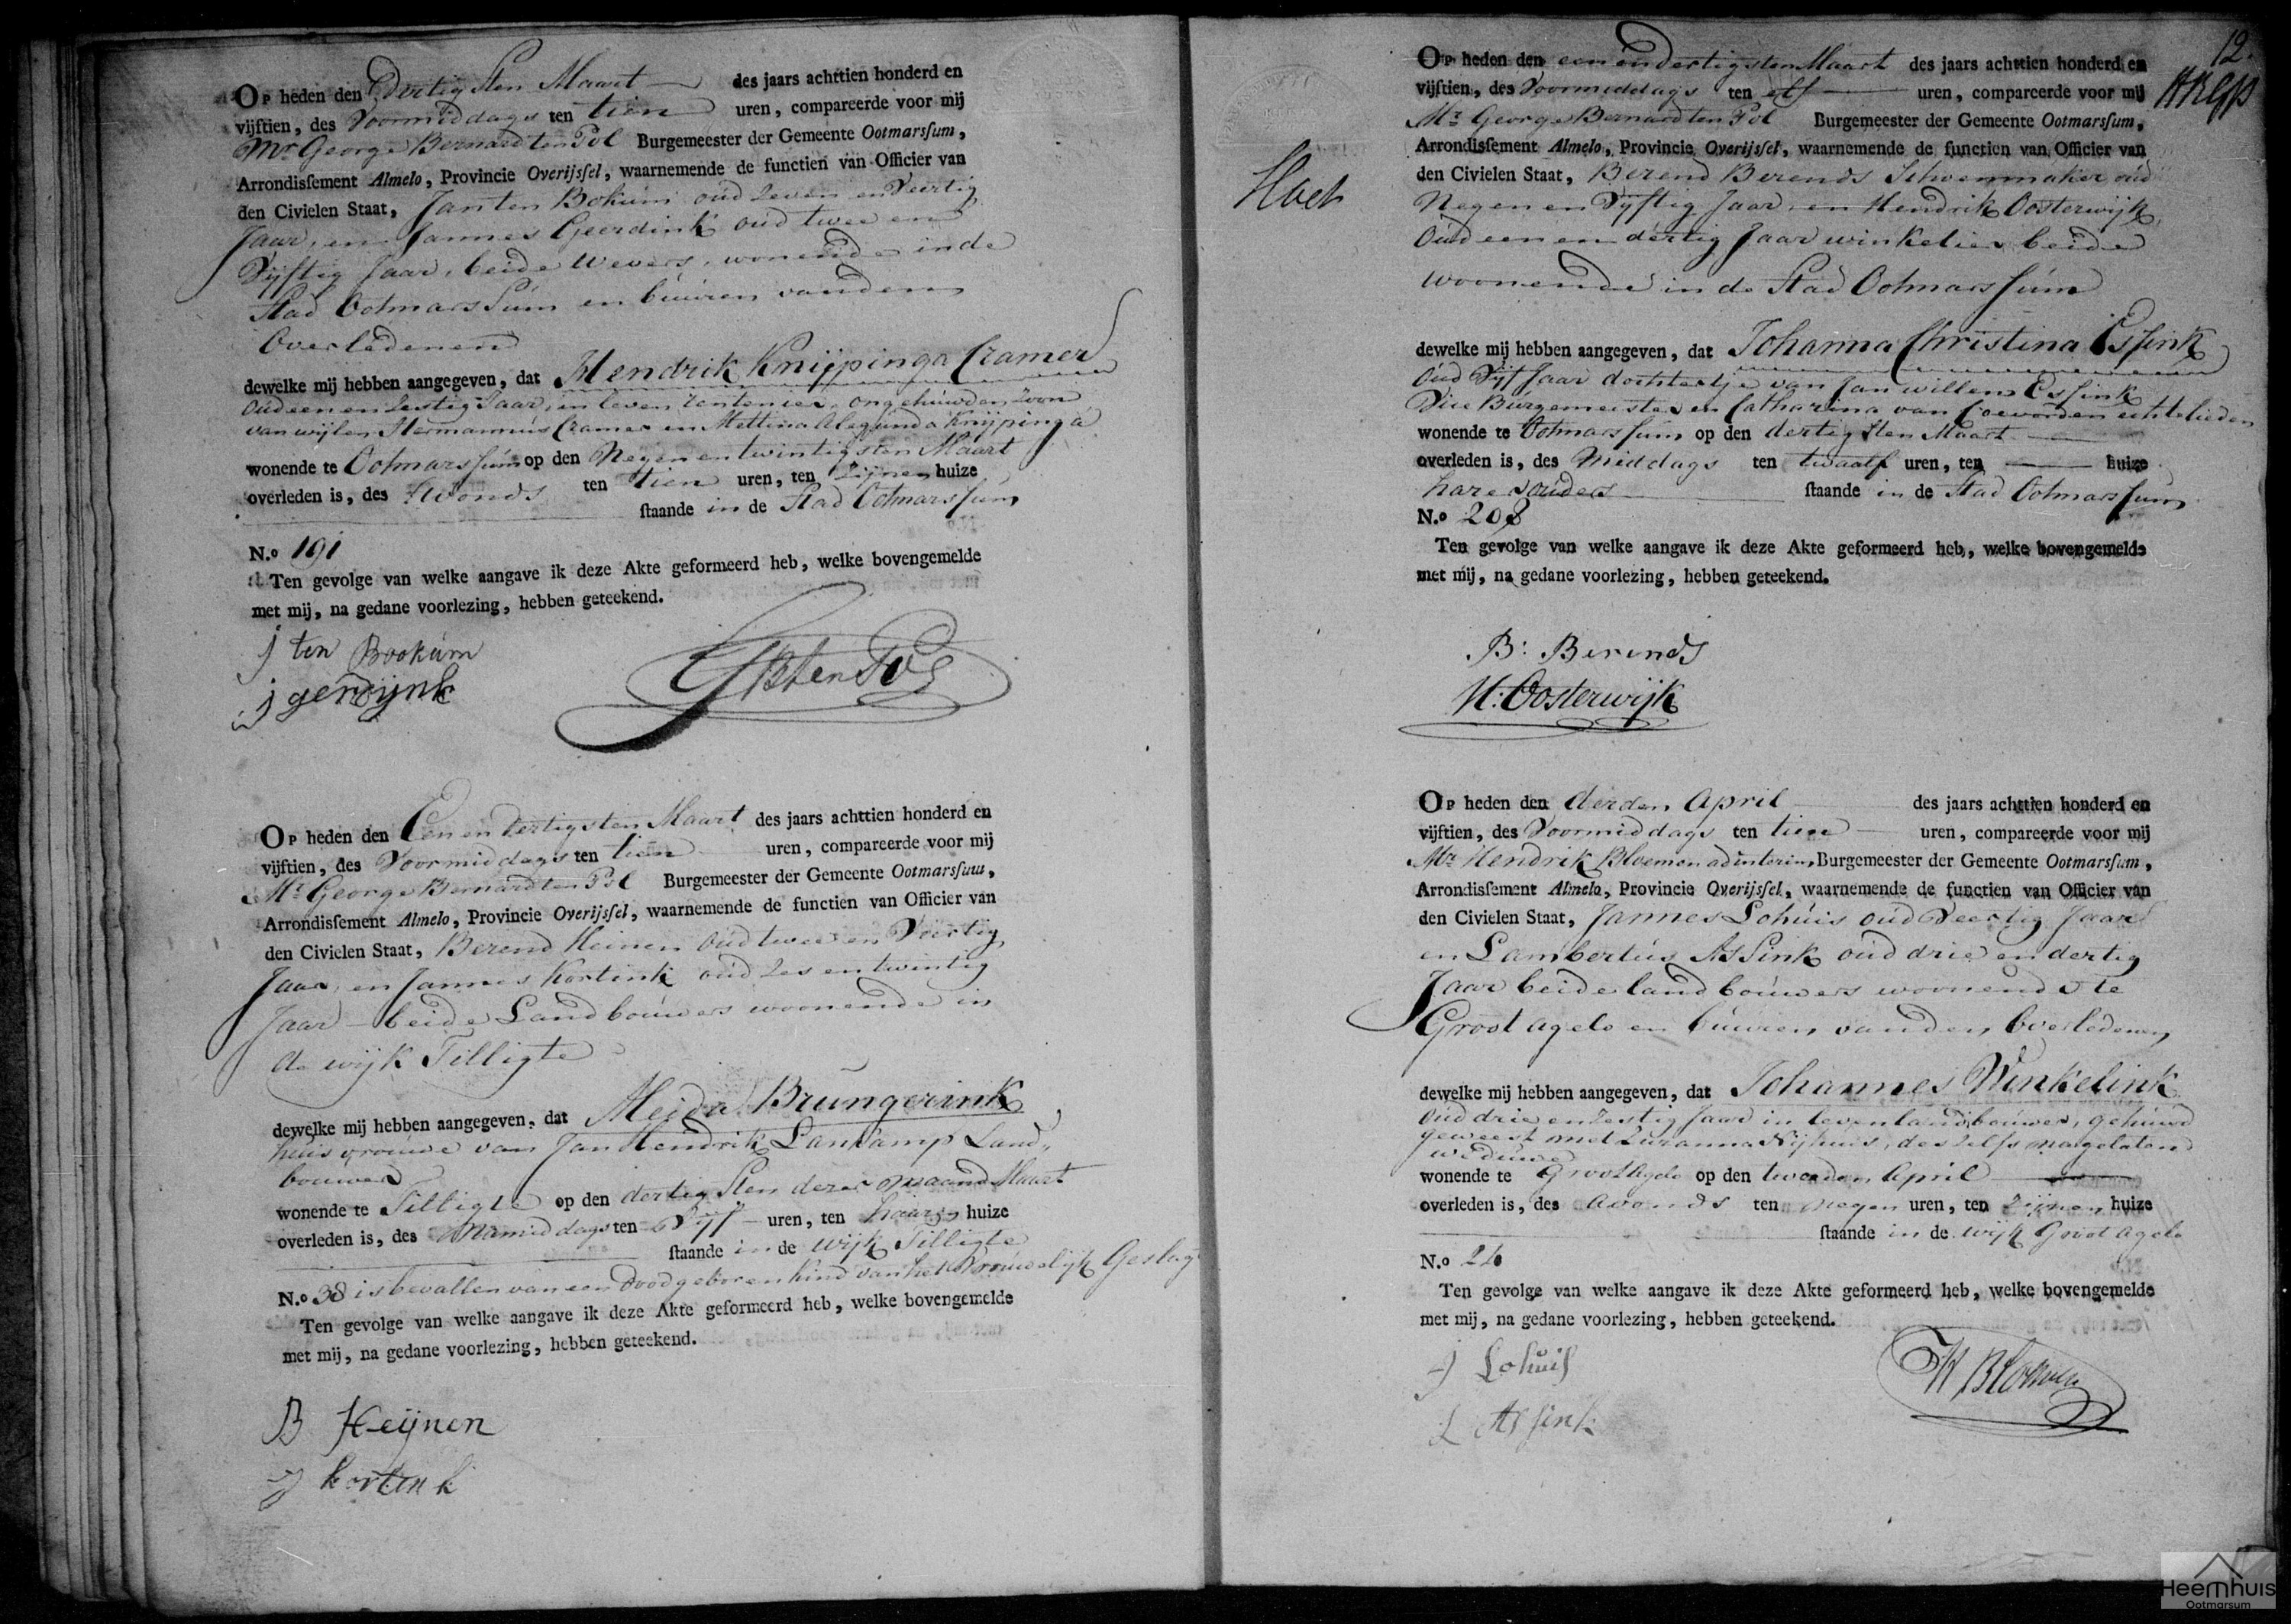 Op heden den Dertigsten Maart des jaars achttien honderd en
vijftien, des Voormiddags ten tien uren, compareerde voor mij
Mr George Bernard ten Pol Burgemeester der Gemeente Ootmarsſum,
Arrondisſement Almelo, Provincie Overijsſel, waarnemende de functien van Officier van
den Civielen Staat, Jan ten Bokum oud Zeven en Veertig
Jaar, en Jannes Geerdink oud twee en
Vijftig Jaar, beide Wevers, wonende in de
Stad Ootmarssum en buuren van den
Overledenen
dewelke mij hebben aangegeven, dat Hendrik Knijpinga Cramer
Oud een en Zestig Jaar, in leven rentenier, ongehuwden Zoon
van wijlen Hermannus Cramer en Mettina Alegunda Knijpinga
wonende te Ootmarssum op den Negen en twintigsten Maart
overleden is, des Avonds ten tien uren, ten Zijnen huize
ſtaande in de Stad Ootmarssum
N.o 191
Ten gevolge van welke aangave ik deze Akte geformeerd heb, welke bovengemelde
met mij, na gedane voorlezing, hebben geteekend.
j ten Bookum
j gerdijnk
GB ten Pol
Op heden den Een en dertigsten Maart des jaars achttien honderd en
vijftien, des Voormiddags ten tien uren, compareerde voor mij
Mr George Bernard ten Pol Burgemeester der Gemeente Ootmarsſum,
Arrondisſement Almelo, Provincie Overijsſel, waarnemende de functien van Officier van
den Civielen Staat, Berend Heinen Oud twee en Veertig
Jaar, en Jannes Kortink oud Zes en twintig
Jaar beide Landbouwers woonende in
de wijk Tilligte
dewelke mij hebben aangegeven, dat Aleida Brungerink
huis vrouwe van Jan Hendrik Lankamp Land
bouwer
wonende te Tilligte op den dertigsten dezer maand Maart
overleden is, des Namiddags ten Vijf uren, ten haar huize
ſtaande in de wijk Tilligte
N.o 38 is bevallen van een doodgeboren kind van het Vrouwelijk Geslagt
Ten gevolge van welke aangave ik deze Akte geformeerd heb, welke bovengemelde
met mij, na gedane voorlezing, hebben geteekend.
B Heijnen
J kortink
12.
Op heden den een en dertigsten Maart des jaars achttien honderd en
vijftien, des Voormiddags ten elf uren, compareerde voor mij
Mr George Bernard ten Pol Burgemeester der Gemeente Ootmarsſum,
Arrondisſement Almelo, Provincie Overijsſel, waarnemende de functien van Officier van
den Civielen Staat, Berend Berends Schoenmaker oud
Negen en Vijftig Jaar, en Hendrik Oosterwijk
Oud een en dertig Jaar winkelier beide
woonende in de Stad Ootmarssum
dewelke mij hebben aangegeven, dat Johanna Christina Essink
Oud Vijf Jaar dochtertje van Jan willem Essink
Vice Burgemeester en Catharina van Coevorden echtelieden
wonende te Ootmarssum op den dertigsten Maart
overleden is, des Middags ten twaalf uren, ten huize
hare ouders ſtaande in de Stad Ootmarssum
N.o 208
Ten gevolge van welke aangave ik deze Akte geformeerd heb, welke bovengemelde
met mij, na gedane voorlezing, hebben geteekend.
B: Berends
H: Oosterwijk
Op heden den derden April des jaars achttien honderd en
vijftien, des Voormiddags ten tien uren, compareerde voor mij
Mr Hendrik Bloemen adinterim Burgemeester der Gemeente Ootmarsſum,
Arrondisſement Almelo, Provincie Overijsſel, waarnemende de functien van Officier van
den Civielen Staat, Jannes Lohuis oud Veertig Jaar
en Lambertus Assink oud drie en dertig
Jaar beide landbouwers woonende te
Groot agelo en buuren van den Overledenen
dewelke mij hebben aangegeven, dat Johannes Winkelink
Oud drie en Zestig Jaar in leven landbouwer, gehuwd
geweest met Zuzanna Nijhuis, deszelfs nagelaten
weduwe
wonende te Groot Agelo op den tweeden April
overleden is, des avonds ten negen uren, ten Zijnen huize
ſtaande in de wijk Groot agelo
N.o 26
Ten gevolge van welke aangave ik deze Akte geformeerd heb, welke bovengemelde
met mij, na gedane voorlezing, hebben geteekend.
J Lohuis
L Assink
H Bloemen
Heemhuis
Ootmarsum